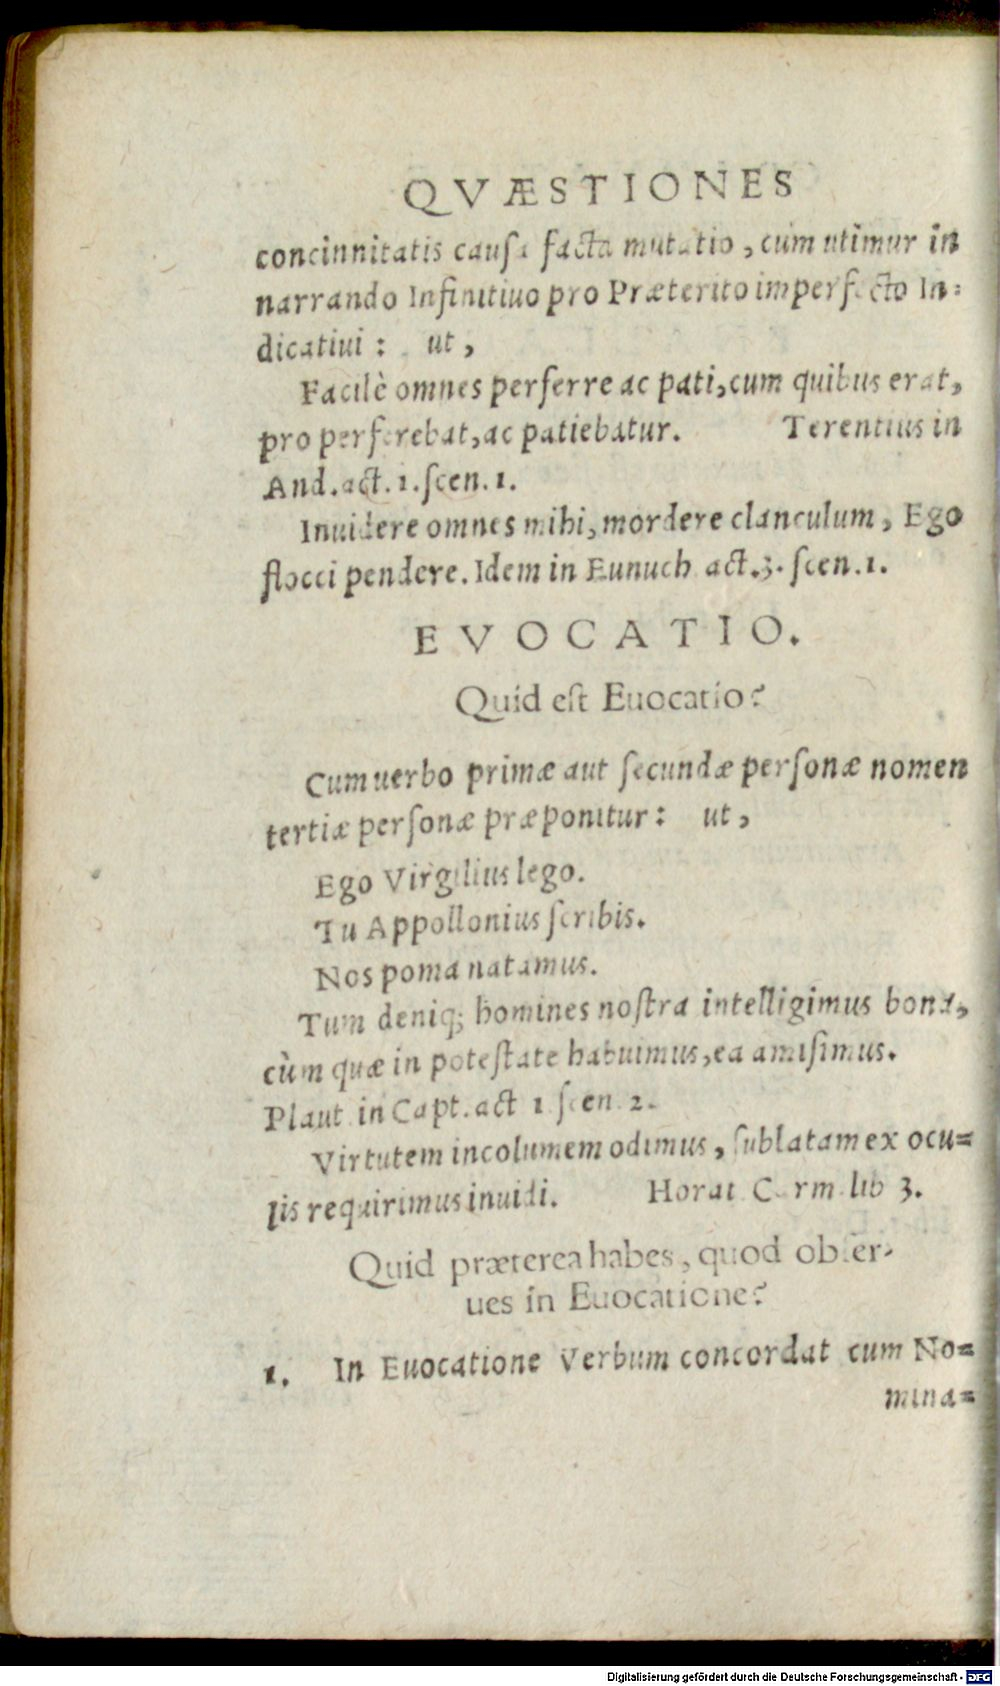 QVÆSTIONES
concinnitatis cauſa facta mutatio, cùm utimur in
narrando Infinitiuo pro Præterito imperfecto In=
dicatiui: ut,
Facilè omnes perferre ac pati, cum quibus erat,
pro perferebat, ac patiebatur. Terentius in
And. act. 1. ſcen. 1.
Inuidere omnes mihi, mordere clanculum, Ego
flocci pendere. Idem in Eunuch act. 3. ſcen. 1.
EVOCATIO.
Quid eſt Euocatio?
Cum uerbo primæ aut ſecundæ perſonæ nomen
tertiæ perſonæ præponitur: ut,
Ego Virgilius lego.
Tu Appollonius ſcribis.
Nos poma natamus.
Tum deniq; homines noſtra intelligimus bona,
cùm quæ in poteſtate habuimus, ea amiſimus.
Plaut in Capt. act 1 ſcen 2.
Virtutem incolumem odimus, ſublatam ex ocu=
lis requirimus inuidi. Horat Carm lib 3.
Quid præterea habes, quod obſer-
ues in Euocatione?
1. In Euocatione Verbum concordat cum No=
mina=
Digitalisierung gefördert durch die Deutsche Forschungsgemeinschaft - DFG